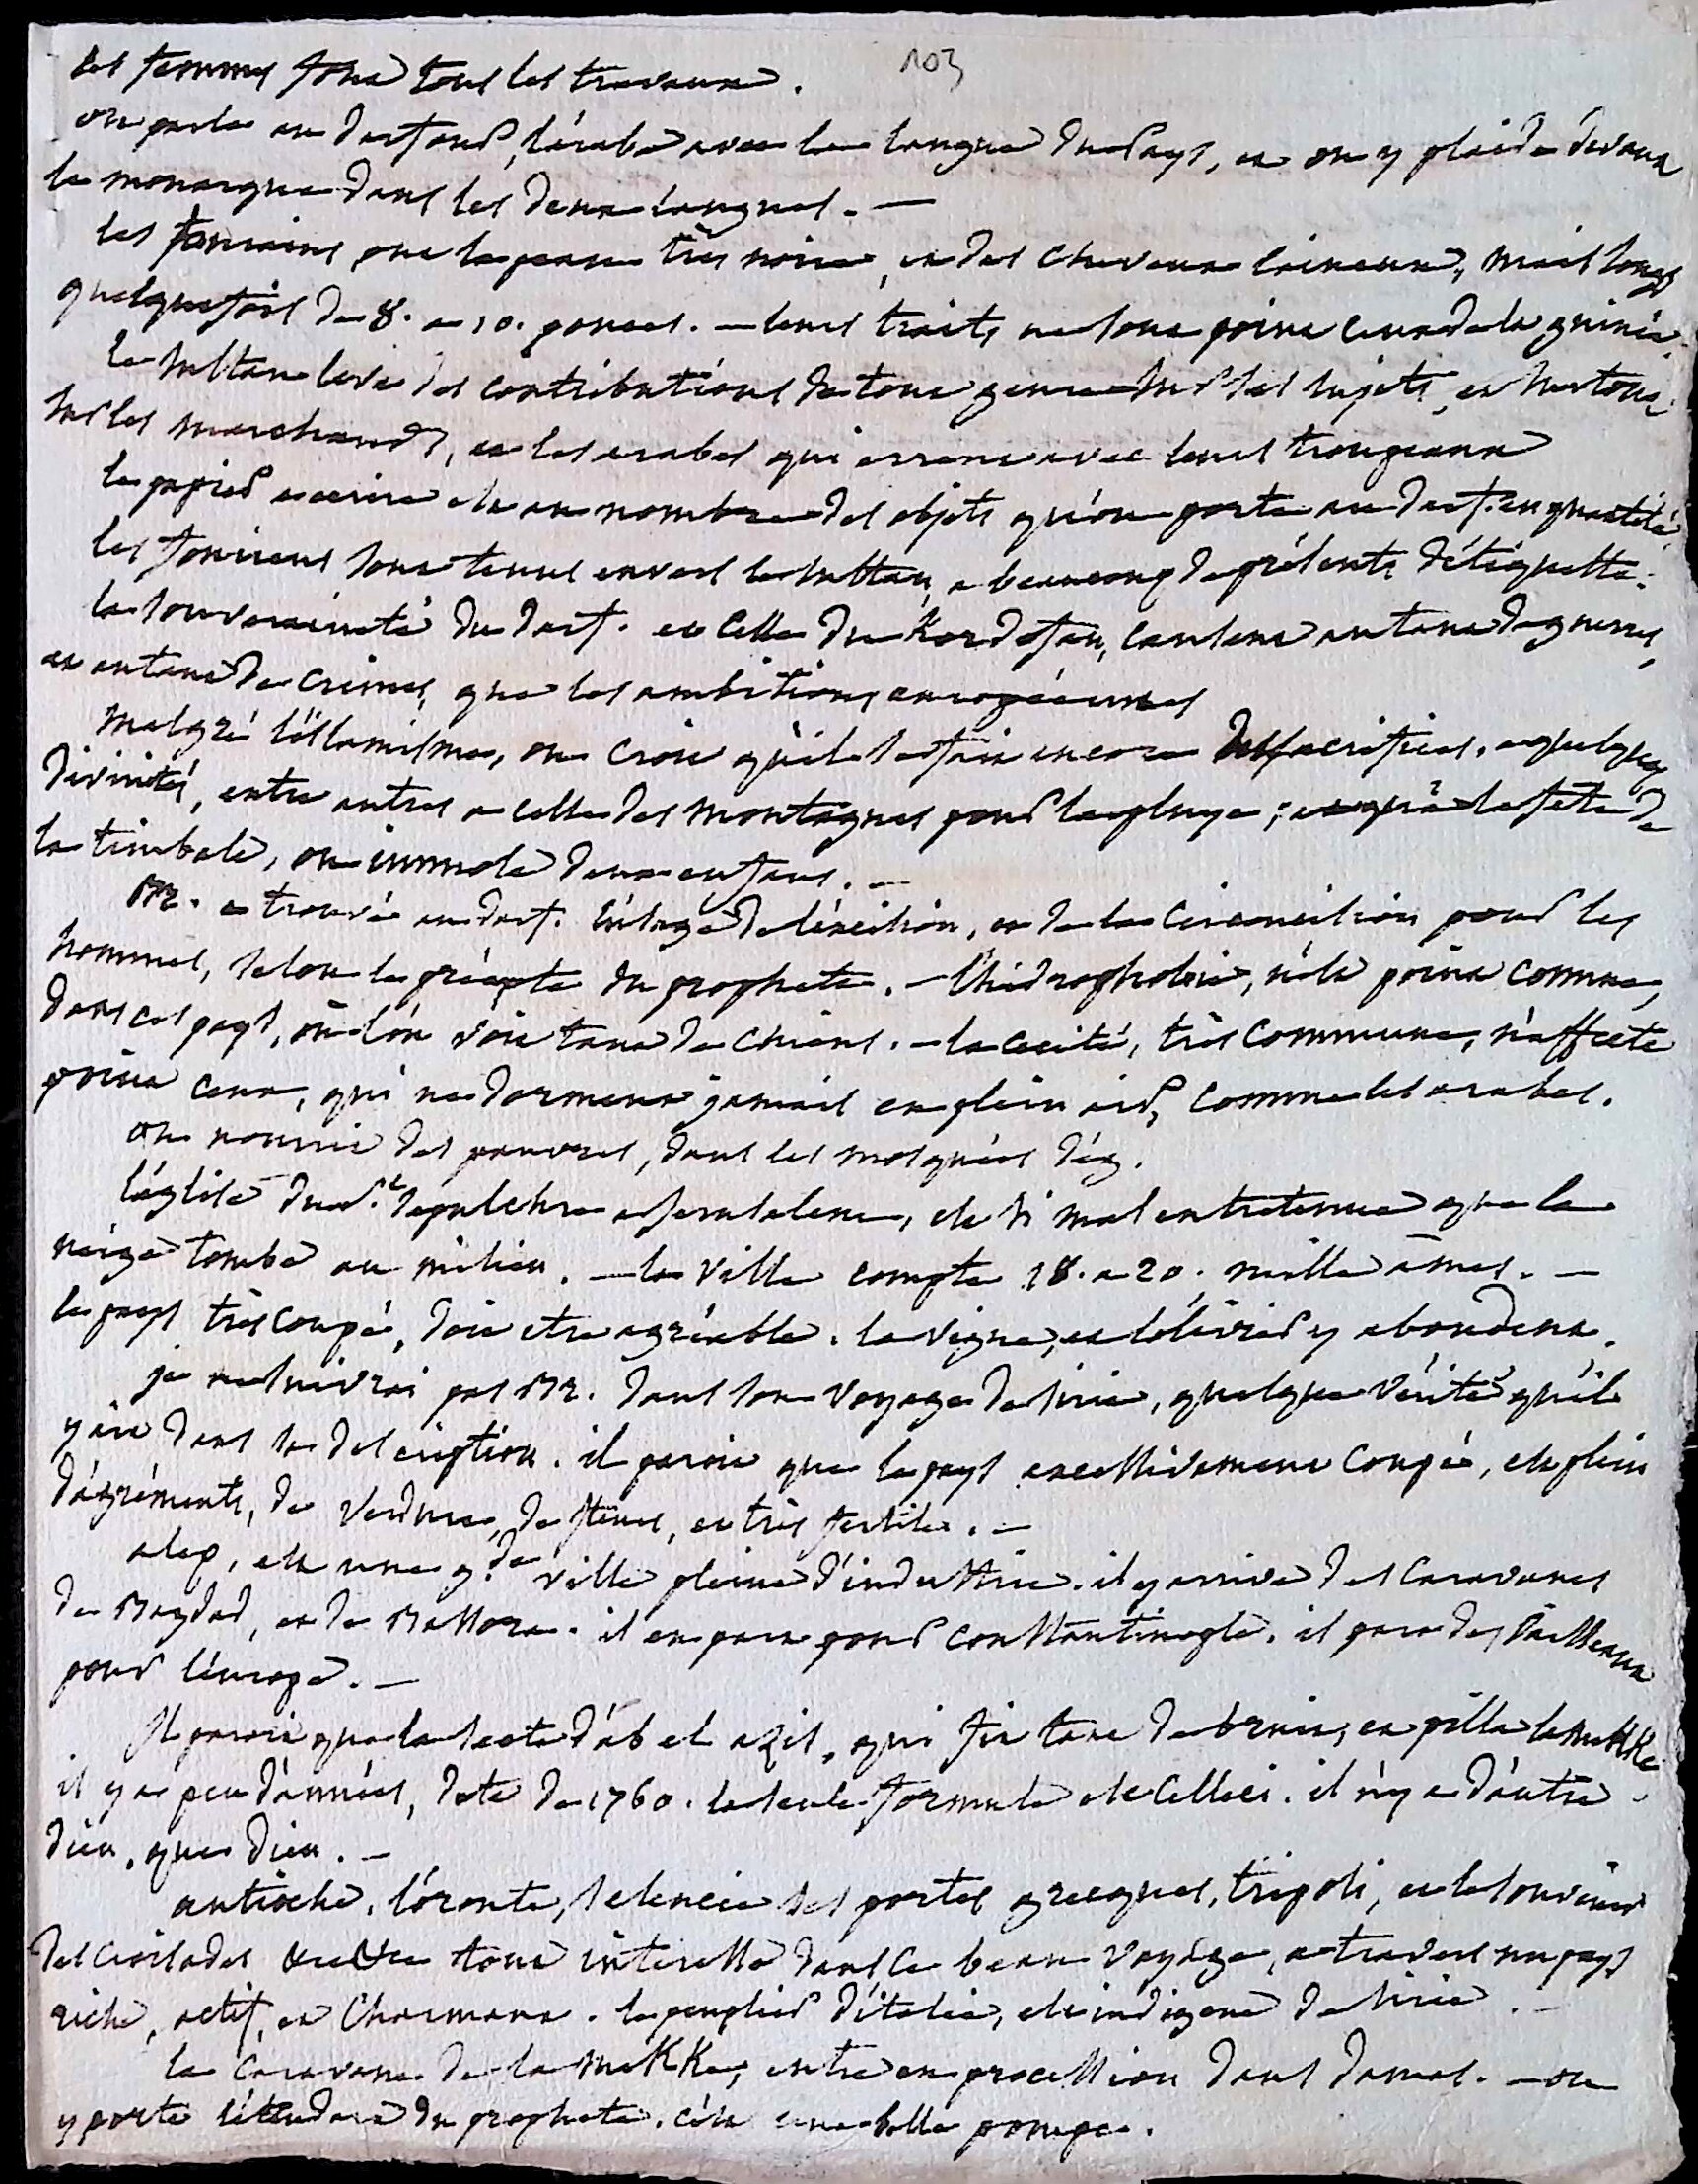 103
les femmes font tous les travaux.
on parle au darfour, l'arabe avec la langue du pays, et on y plaide devant
le monarque dans les deux langues. —
les fouriens ont la peau très noire, et des cheveux laineux, mais longs
quelquefois de 8. a 10. pouces. — leurs traits ne sont point ceux de la guinée.
le sultan lève des contributions de tout genre sur ses sujets, et surtout
sur les marchands, et les arabes qui errent avec leurs troupeaux
le papier a ecrire est au nombre des objets qu'on porte au darf. en quantité.
les fouriens sont tenus envers le sultan, a beaucoup de présents d'étiquette.
la souveraineté du darf. et celle du Kordofan, causent autant de guerres,
et autant de crimes, que les ambitions européennes
malgré l'islamisme, on croit qu'il se fait encore des sacrifices, a quelques
divinités, entre autres a celle des montagnes pour la pluye; et qu'a la fete de
la timbale, on immole deux enfans. —
Br. a trouvé au darf. l'usage de l'excision, et de la circoncision pour les
hommes, selon le précepte du prophete. — l'hidrophobie, n'est point connue,
dans ces pays, où l'on voit tant de chiens. — la cecité, très commune, n'affecte
point ceux, qui ne dorment jamais en plein air, comme les arabes.
on nourrit des pauvres, dans les mosquées d'ég.
l'église du St. sepulchre a Jerusalem, est si mal entretenue que la
neige tombe au milieu. — la ville compte 18. a 20. mille âmes. —
le pays très coupé, doit etre agréable. la vigne, et l'olivier y abondent.
je ne suivrai pas Br. dans son voyage de sirie, quelque vérité qu'il
y ait dans sa description. il paroit que le pays excessivement coupé, est plein
d'agréments, de verdure, de fleurs, et très fertile. —
alep, est une gde. ville pleine d'industrie. il y arrive des caravanes
de Bagdad, et de Bassora. il en part pour constantinople. il part des vaisseaux
pour l'europe. —
Il paroit que la secte d'ab el azis, qui fit tant de bruit, et pilla la mekke
il y a peu d'années, date de 1760. la seule formule est celle ci. il n'y a d'autre
dieu, que dieu. —
antioche, l'oronte, seleucie ses portes grecques, tripoli, et le souvenir
des croisades tout interesse dans ce beau voyage, a travers un pays
riche, actif, et charmant. le peuplier d'italie, est indigene de sirie. —
la caravane de la mekke, entre en procession dans damas. — on
y porte l'étendard du prophete. c'est une belle pompe.